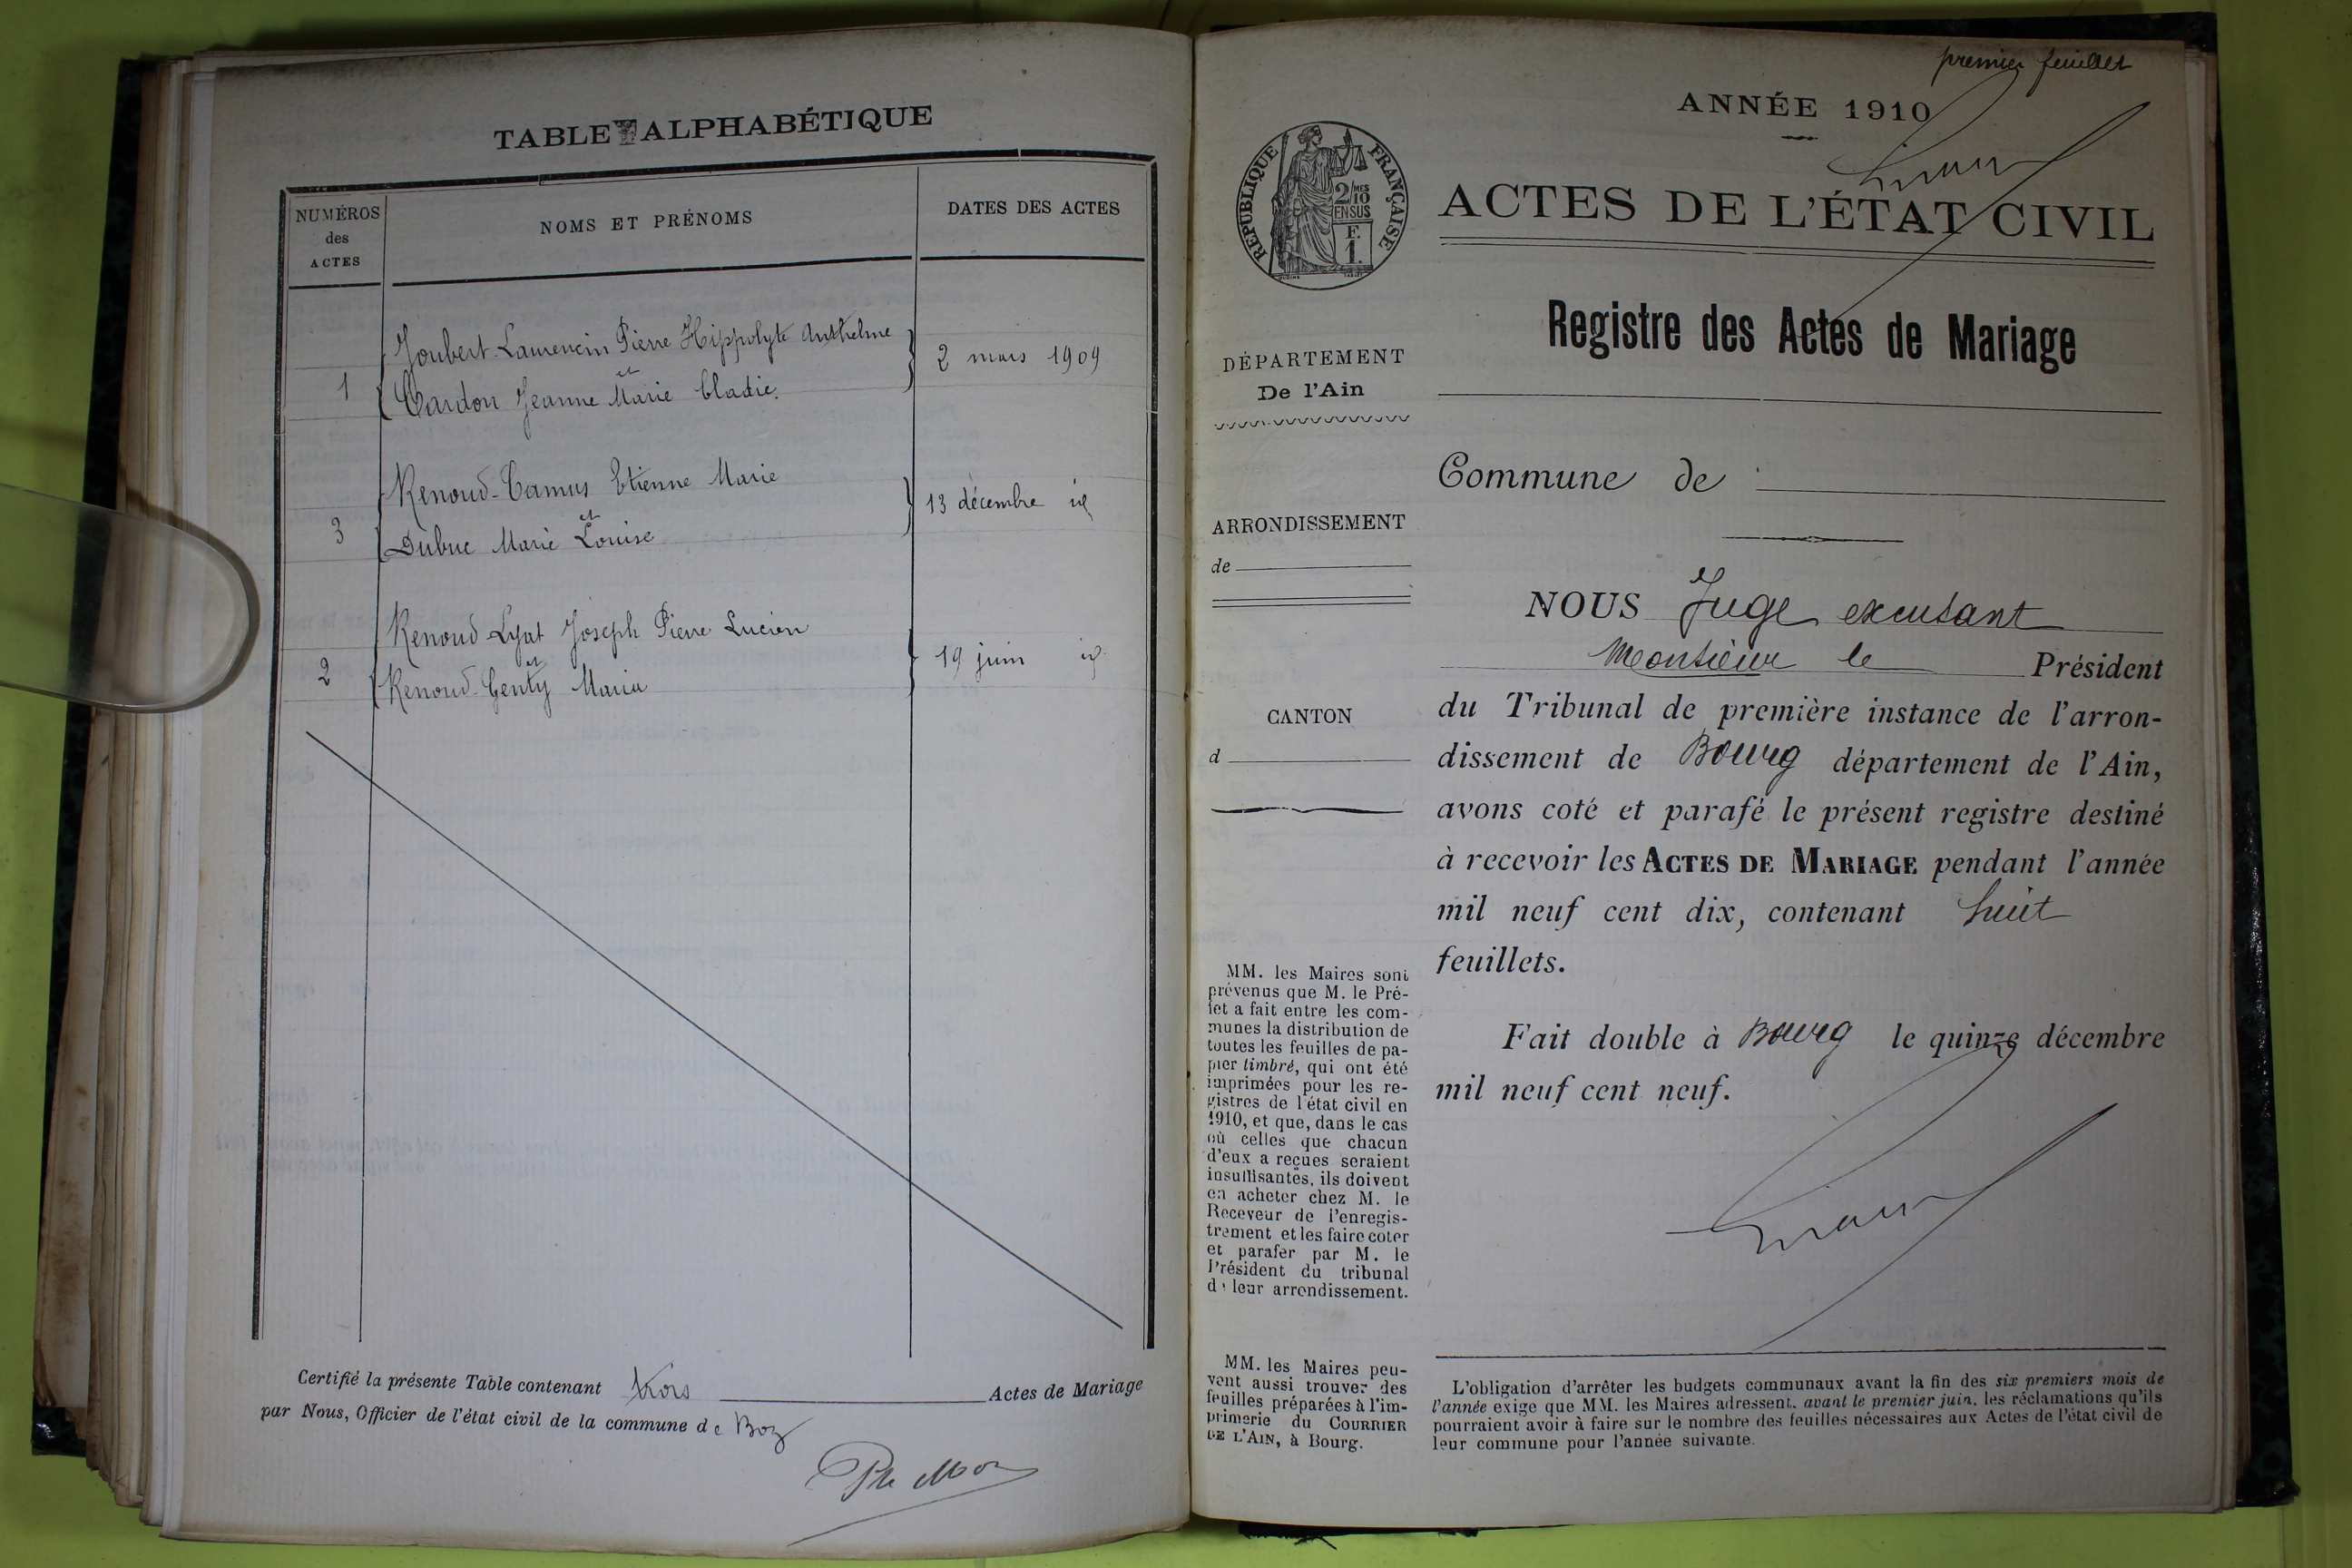 TABLE ALPHABÉTIQUE
NUMÉROS
des
ACTES
NOMS ET PRÉNOMS
DATES DES ACTES
Joubert-Laurencin Pierre Hippolyte Anthelme
et
1 Cardon Jeanne Marie Cladie.
2 mars 1909
Renoud-Camus Etienne Marie
et
3 Dubuc Marie Louise
13 décembre id
Renoud-Lyat Joseph Pierre Lucien
et
2 Renoud-Genty Maria
19 juin id
Certifié la présente Table contenant trois Actes de Mariage
par Nous, Officier de l'état civil de la commune de Boz
premier feuillet
ANNÉE 1910
RÉPUBLIQUE FRANÇAISE
2/10MES
EN SUS
F.
1.
ACTES DE L'ÉTAT CIVIL
Registre des Actes de Mariage
DÉPARTEMENT
De l'Ain
ARRONDISSEMENT
de
CANTON
d
MM. les Maires sont
prévenus que M. le Pré-
fet a fait entre les com-
munes la distribution de
toutes les feuilles de pa-
pier timbré, qui ont été
imprimées pour les re-
gistres de l'état civil en
1910, et que, dans le cas
où celles que chacun
d'eux a reçues seraient
insuffisantes, ils doivent
en acheter chez M. le
Receveur de l'enregis-
trement et les faire coter
et parafer par M. le
Président du tribunal
de leur arrondissement.
MM. les Maires peu-
vent aussi trouver des
feuilles préparées à l'im-
primerie du COURRIER
DE L'AIN, à Bourg.
Commune de
NOUS Juge excusant
Monsieur le Président
du Tribunal de première instance de l'arron-
dissement de Bourg département de l'Ain,
avons coté et parafé le présent registre destiné
à recevoir les ACTES DE MARIAGE pendant l'année
mil neuf cent dix, contenant huit
feuillets.
Fait double à Bourg le quinze décembre
mil neuf cent neuf.
L'obligation d'arrêter les budgets communaux avant la fin des six premiers mois de
l'année exige que MM. les Maires adressent, avant le premier juin, les réclamations qu'ils
pourraient avoir à faire sur le nombre des feuilles nécessaires aux Actes de l'état civil de
leur commune pour l'année suivante.